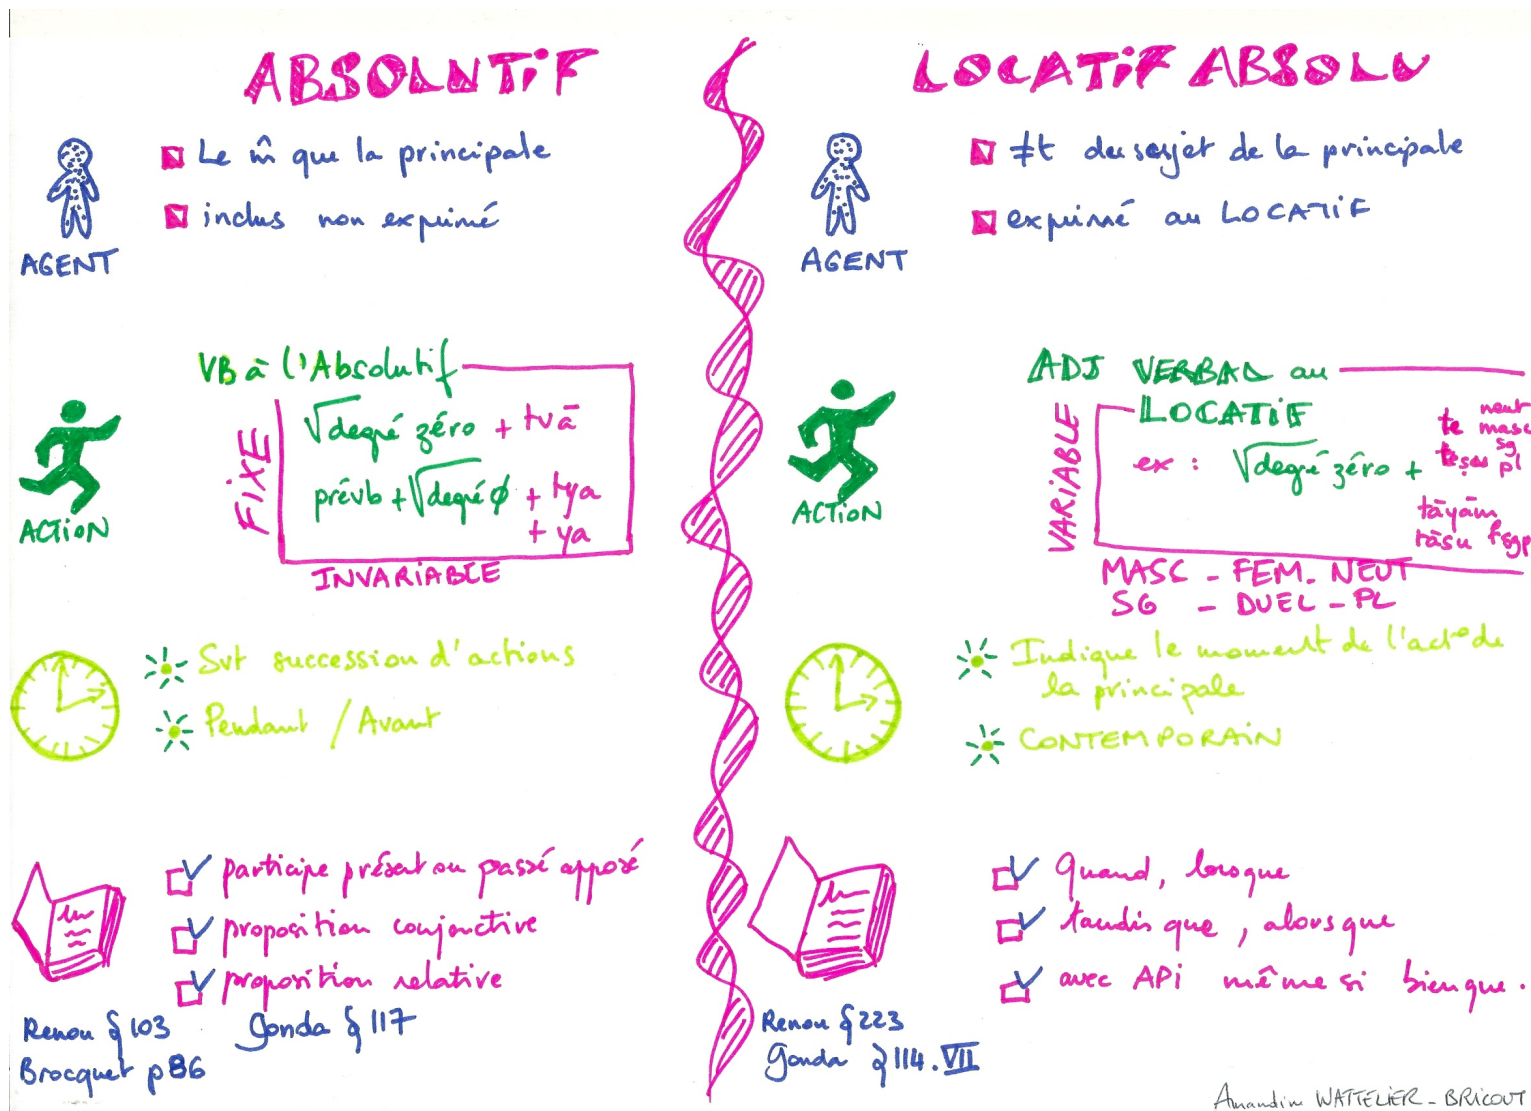 ABSOLUTIF
Le m̂ que la principale
inclus non exprimé
AGENT
VB à l'Absolutif
√degré zéro + tvā
prévb + √degré ø + tya
+ ya
FIXE
INVARIABLE
ACTION
Svt succession d'actions
Pendant / Avant
participe présent ou passé apposé
proposition conjonctive
proposition relative
Renou § 103 Gonda § 117
Brocquet p 86
LOCATIF ABSOLU
≠t du sujet de la principale
exprimé au LOCATIF
AGENT
ADJ VERBAL au
LOCATIF
ex : √degré zéro +
te neut masc sg
teṣu pl
tāyām
tāsu f sg p
VARIABLE
MASC - FEM. NEUT
SG - DUEL - PL
ACTION
Indique le moment de l'act° de
la principale
CONTEMPORAIN
Quand, lorsque
tandis que, alors que
avec API même si bien que.
Renou § 223
Gonda § 114. VII
Amandine WATTELIER - BRICOUT